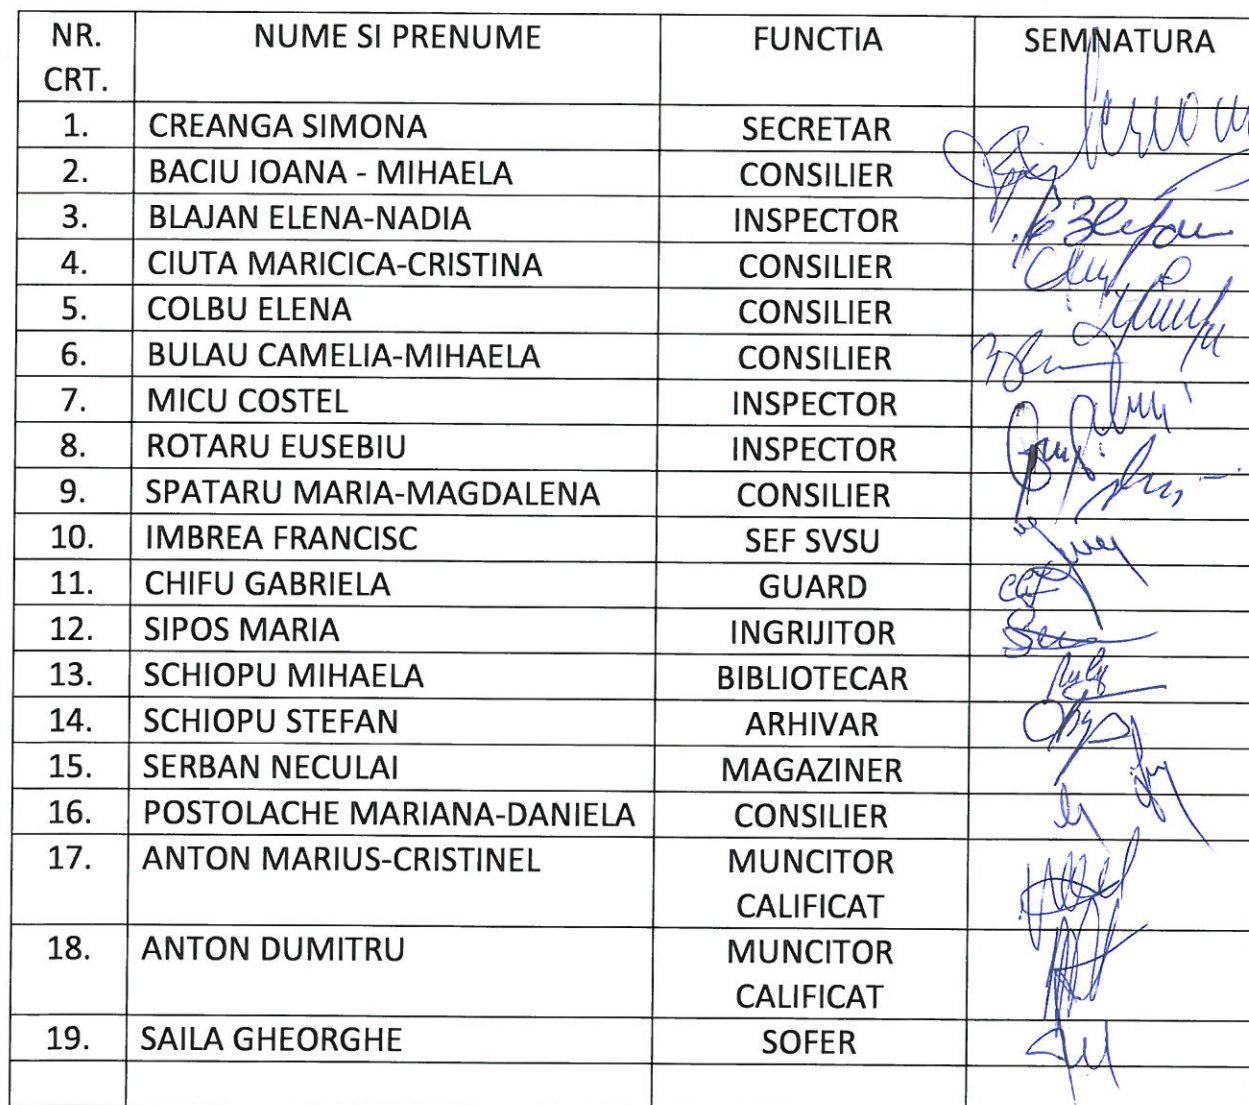 NR. CRT. NUME SI PRENUME FUNCTIA SEMNATURA
1. CREANGA SIMONA SECRETAR
2. BACIU IOANA - MIHAELA CONSILIER
3. BLAJAN ELENA-NADIA INSPECTOR
4. CIUTA MARICICA-CRISTINA CONSILIER
5. COLBU ELENA CONSILIER
6. BULAU CAMELIA-MIHAELA CONSILIER
7. MICU COSTEL INSPECTOR
8. ROTARU EUSEBIU INSPECTOR
9. SPATARU MARIA-MAGDALENA CONSILIER
10. IMBREA FRANCISC SEF SVSU
11. CHIFU GABRIELA GUARD
12. SIPOS MARIA INGRIJITOR
13. SCHIOPU MIHAELA BIBLIOTECAR
14. SCHIOPU STEFAN ARHIVAR
15. SERBAN NECULAI MAGAZINER
16. POSTOLACHE MARIANA-DANIELA CONSILIER
17. ANTON MARIUS-CRISTINEL MUNCITOR
CALIFICAT
18. ANTON DUMITRU MUNCITOR
CALIFICAT
19. SAILA GHEORGHE SOFER